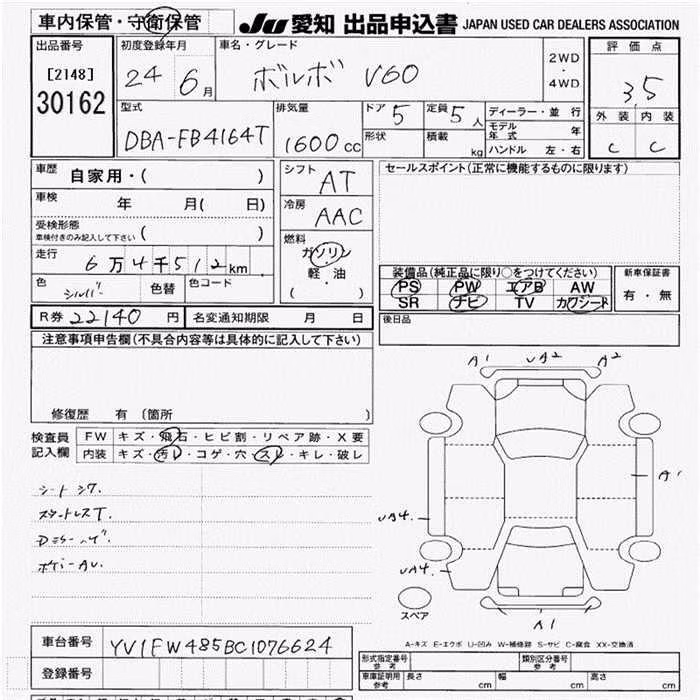 車内保管・守衛保管 JU 愛知 出品申込書 JAPAN USED CAR DEALERS ASSOCIATION
出品番号 初度登録年月 車名・グレード 評価点
[2148] 24 6月 ボルボ V60 2WD・4WD 3.5
30162
型式 排気量 ドア 5 定員 5人 ディーラー・並行 外装 内装
DBA-FB4164T 1600cc 形状 積載 kg モデル年式 年 C C
ハンドル 左・右
車歴 自家用・( ) シフト AT セールスポイント(正常に機能するものに限ります)
車検 年 月( 日) 冷房 AAC
受検形態
車検付きのみ記入して下さい ( )
燃料
走行 6万4千512km ガソリン
軽・油
( )
装備品(純正品に限り○をつけてください) 新車保証書
色 シルバー 色替 色コード PS PW エアB AW 有・無
SR ナビ TV カワシート
R券 22140円 名変通知期限 月 日 後日品
注意事項申告欄(不具合内容等は具体的に記入して下さい)
修復歴 有 (箇所 )
A1 UA2 A2
検査員 FW キズ・飛石・ヒビ割・リペア跡・X要
記入欄 内装 キズ・汚レ・コゲ・穴・スレ・キレ・破レ
A1
シートシワ.
スタートレスT.
UA4.
UA4.
スペア
A1
車台番号 YV1FW485BC1076624
A-キズ E-エクボ U-凹み W-補修跡 S-サビ C-腐食 XX-交換済
登録番号 形式指定番号 参考 類別区分番号 参考
車庫証明用 参考 長さ cm 幅 cm 高さ cm